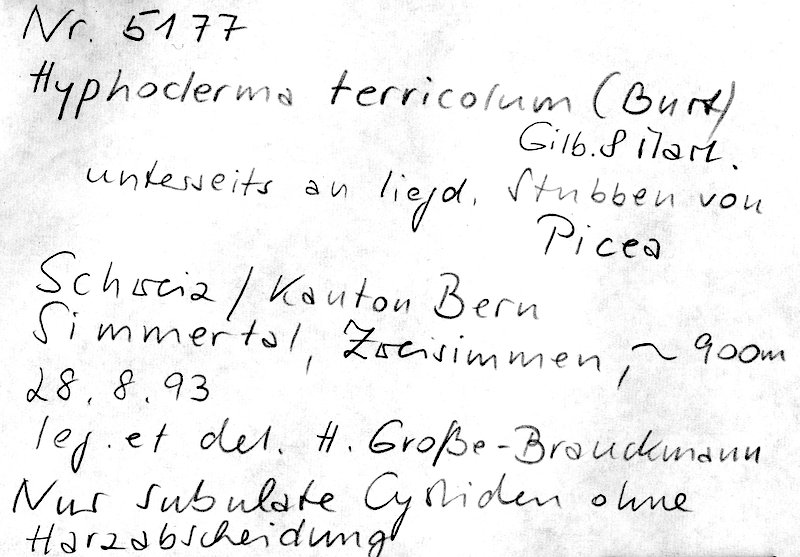 Nr. 5177
Hyphoderma terricolum (Burt)
Gilb. & Mart.
unterseits an liegd. Stubben von
Picea
Schweiz / Kanton Bern
Simmertal, Zweisimmen, ~ 900m
28. 8. 93
leg. et det. H. Große-Brauckmann
Nur subulate Cystiden ohne
Harzabscheidung